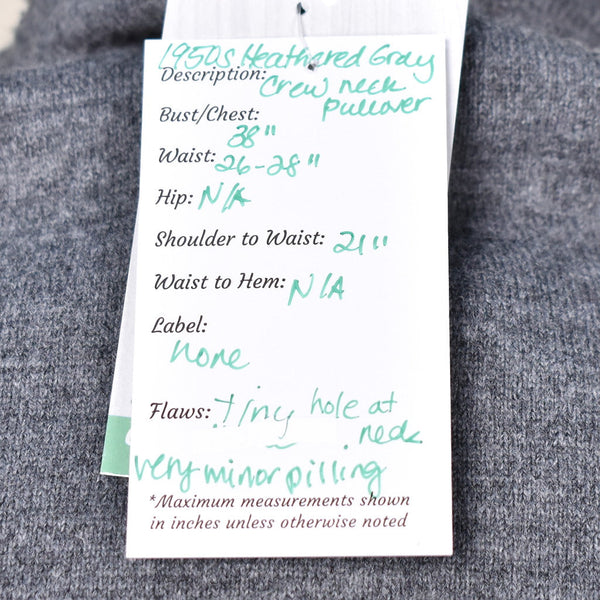 1950s Heathered Gray
Description: Crew neck
pullover
Bust/Chest:
38"
Waist: 26-28"
Hip: N/A
Shoulder to Waist: 21"
Waist to Hem: N/A
Label:
none
Flaws: Tiny hole at
neck
very minor pilling
*Maximum measurements shown
in inches unless otherwise noted